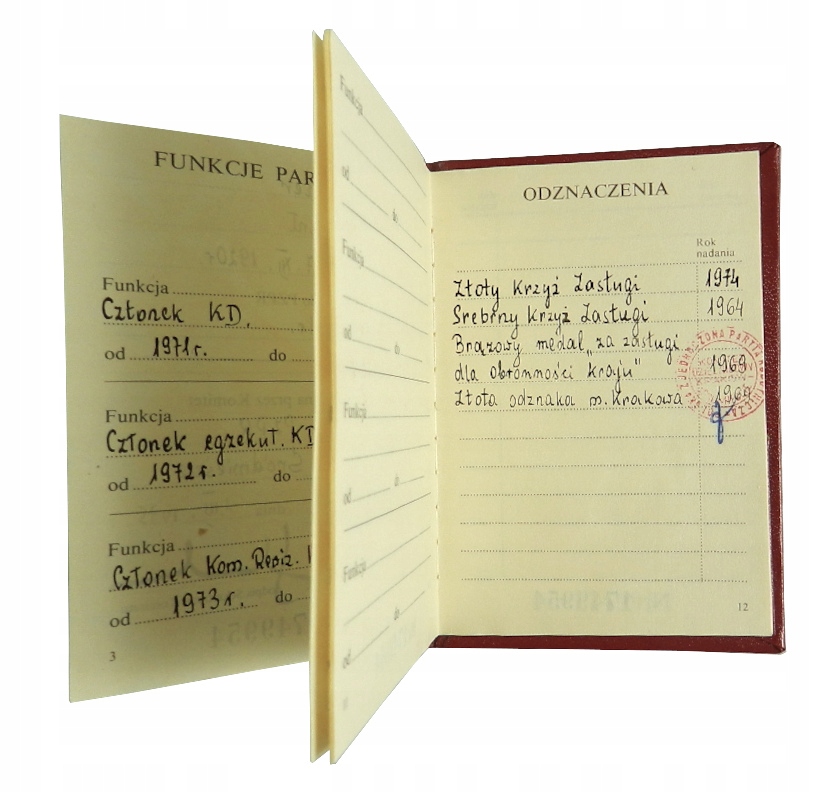 FUNKCJE PAR
Funkcja
Członek KD,
od 1971r. do
Funkcja
Członek egzekut. KD
od 1972r. do
Funkcja
Członek Kom. Rewiz.
od 1973r. do
3
Funkcja
od do
Funkcja
od do
Funkcja
od do
Funkcja
od do
ODZNACZENIA
Rok
nadania
Złoty Krzyż Zasługi 1974
Srebrny Krzyż Zasługi 1964
Brązowy medal „za zasługi
dla obronności kraju" 1969
Złota odznaka m. Krakowa
12